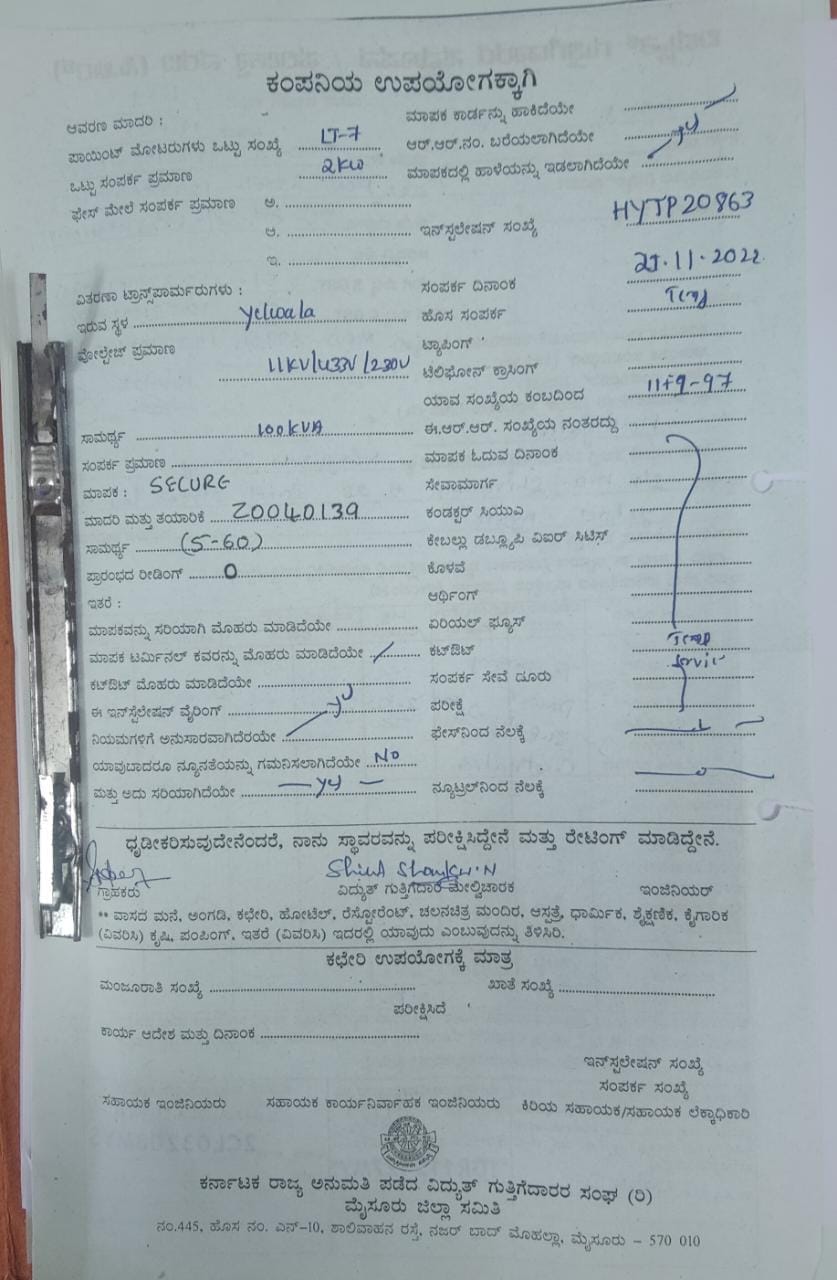 ಕಂಪನಿಯ ಉಪಯೋಗಕ್ಕಾಗಿ
ಆವರಣ ಮಾದರಿ :
ಮಾಪಕ ಕಾರ್ಡನ್ನು ಹಾಕಿದೆಯೇ
ಪಾಯಿಂಟ್ ಮೋಟರುಗಳು ಒಟ್ಟು ಸಂಖ್ಯೆ LT-7
ಆರ್.ಆರ್.ನಂ. ಬರೆಯಲಾಗಿದೆಯೇ
ಒಟ್ಟು ಸಂಪರ್ಕ ಪ್ರಮಾಣ 2KW
ಮಾಪಕದಲ್ಲಿ ಹಾಳೆಯನ್ನು ಇಡಲಾಗಿದೆಯೇ
ಫೇಸ್ ಮೇಲೆ ಸಂಪರ್ಕ ಪ್ರಮಾಣ ಅ.
ಆ.
ಇನ್‌ಸ್ಟಲೇಷನ್ ಸಂಖ್ಯೆ HYTP20863
ಇ.
ವಿತರಣಾ ಟ್ರಾನ್ಸ್‌ಪಾರ್ಮರುಗಳು :
ಸಂಪರ್ಕ ದಿನಾಂಕ
ಇರುವ ಸ್ಥಳ Yelwala
ಹೊಸ ಸಂಪರ್ಕ
ಟ್ಯಾಪಿಂಗ್
ವೋಲ್ಟೇಜ್ ಪ್ರಮಾಣ 11KV/433V/230V
ಟೆಲಿಫೋನ್ ಕ್ರಾಸಿಂಗ್
ಯಾವ ಸಂಖ್ಯೆಯ ಕಂಬದಿಂದ
ಸಾಮರ್ಥ್ಯ 100KVA
ಈ.ಆರ್.ಆರ್. ಸಂಖ್ಯೆಯ ನಂತರದ್ದು
ಸಂಪರ್ಕ ಪ್ರಮಾಣ
ಮಾಪಕ ಓದುವ ದಿನಾಂಕ
ಮಾಪಕ : SECURE
ಸೇವಾಮಾರ್ಗ
ಮಾದರಿ ಮತ್ತು ತಯಾರಿಕೆ Z0040139
ಕಂಡಕ್ಟರ್ ಸಿಯುಎ
ಸಾಮರ್ಥ್ಯ (5-60)
ಕೇಬಲ್ಲು ಡಬ್ಲ್ಯೂಪಿ ವಿಐರ್ ಸಿಟಿಸ್
ಪ್ರಾರಂಭದ ರೀಡಿಂಗ್ 0
ಕೊಳವೆ
ಇತರೆ :
ಆರ್ಥಿಂಗ್
ಮಾಪಕವನ್ನು ಸರಿಯಾಗಿ ಮೊಹರು ಮಾಡಿದೆಯೇ
ಏರಿಯಲ್ ಫ್ಯೂಸ್
ಮಾಪಕ ಟರ್ಮಿನಲ್ ಕವರನ್ನು ಮೊಹರು ಮಾಡಿದೆಯೇ
ಕಟ್‌ಔಟ್
ಕಟ್‌ಔಟ್ ಮೊಹರು ಮಾಡಿದೆಯೇ
ಸಂಪರ್ಕ ಸೇವೆ ದೂರು
ಈ ಇನ್‌ಸ್ಟೆಲೇಷನ್ ವೈರಿಂಗ್
ಪರೀಕ್ಷೆ
ನಿಯಮಗಳಿಗೆ ಅನುಸಾರವಾಗಿದೆಯೇ
ಫೇಸ್‌ನಿಂದ ನೆಲಕ್ಕೆ
ಯಾವುದಾದರೂ ನ್ಯೂನತೆಯನ್ನು ಗಮನಿಸಲಾಗಿದೆಯೇ No
ಮತ್ತು ಅದು ಸರಿಯಾಗಿದೆಯೇ
ನ್ಯೂಟ್ರಲ್‌ನಿಂದ ನೆಲಕ್ಕೆ
ಧೃಡೀಕರಿಸುವುದೇನೆಂದರೆ, ನಾನು ಸ್ಥಾವರವನ್ನು ಪರೀಕ್ಷಿಸಿದ್ದೇನೆ ಮತ್ತು ರೇಟಿಂಗ್ ಮಾಡಿದ್ದೇನೆ.
ಗ್ರಾಹಕರು ವಿದ್ಯುತ್ ಗುತ್ತಿಗೆದಾರ ಮೇಲ್ವಿಚಾರಕ ಇಂಜಿನಿಯರ್
** ವಾಸದ ಮನೆ, ಅಂಗಡಿ, ಕಛೇರಿ, ಹೋಟೆಲ್, ರೆಸ್ಟೋರೆಂಟ್, ಚಲನಚಿತ್ರ ಮಂದಿರ, ಆಸ್ಪತ್ರೆ, ಧಾರ್ಮಿಕ, ಶೈಕ್ಷಣಿಕ, ಕೈಗಾರಿಕ
(ವಿವರಿಸಿ) ಕೃಷಿ, ಪಂಪಿಂಗ್, ಇತರೆ (ವಿವರಿಸಿ) ಇದರಲ್ಲಿ ಯಾವುದು ಎಂಬುವುದನ್ನು ತಿಳಿಸಿರಿ.
ಕಛೇರಿ ಉಪಯೋಗಕ್ಕೆ ಮಾತ್ರ
ಮಂಜೂರಾತಿ ಸಂಖ್ಯೆ ಖಾತೆ ಸಂಖ್ಯೆ
ಪರೀಕ್ಷಿಸಿದೆ
ಕಾರ್ಯ ಆದೇಶ ಮತ್ತು ದಿನಾಂಕ
ಇನ್‌ಸ್ಟಲೇಷನ್ ಸಂಖ್ಯೆ
ಸಂಪರ್ಕ ಸಂಖ್ಯೆ
ಸಹಾಯಕ ಇಂಜಿನಿಯರು ಸಹಾಯಕ ಕಾರ್ಯನಿರ್ವಾಹಕ ಇಂಜಿನಿಯರು ಕಿರಿಯ ಸಹಾಯಕ/ಸಹಾಯಕ ಲೆಕ್ಕಾಧಿಕಾರಿ
ಕರ್ನಾಟಕ ರಾಜ್ಯ ಅನುಮತಿ ಪಡೆದ ವಿದ್ಯುತ್ ಗುತ್ತಿಗೆದಾರರ ಸಂಘ (ರಿ)
ಮೈಸೂರು ಜಿಲ್ಲಾ ಸಮಿತಿ
ನಂ.445, ಹೊಸ ನಂ. ಎನ್-10, ಶಾಲಿವಾಹನ ರಸ್ತೆ, ನಜರ್ ಬಾದ್ ಮೊಹಲ್ಲಾ, ಮೈಸೂರು - 570 010